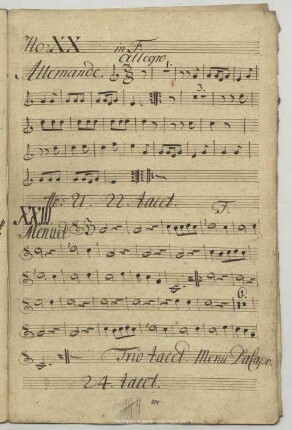 No: XX in F.
allegro
Allemande.
3.
No: 21. 22 tacet.
XXIII F.
Menuet
6.
Trio tacet Menu: DaCapo.
24. tacet.